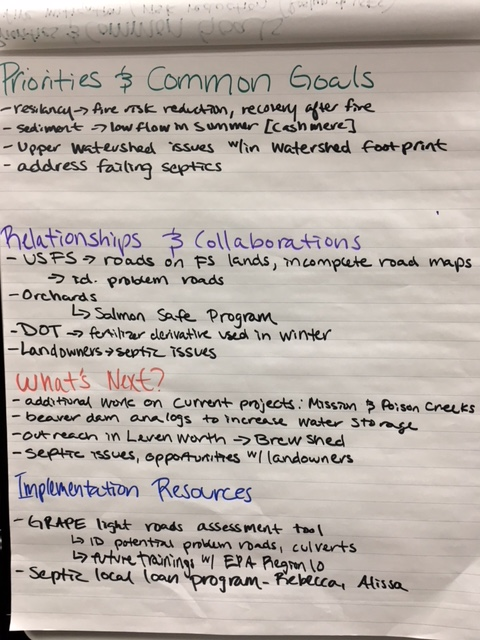 Priorities & Common Goals
- resiliancy → fire risk reduction, recovery after fire
- sediment → low flow in summer [Cashmere]
- Upper Watershed issues w/in watershed footprint
- address failing septics
Relationships & Collaborations
- USFS → roads on FS lands, incomplete road maps
→ id. problem roads
- Orchards
↳ Salmon Safe Program
- DOT → fertilizer derivative used in winter
- Landowners → septic issues
What's Next?
- additional work on current projects: Mission & Poison Creeks
- beaver dam analogs to increase water storage
- outreach in Leavenworth → Brewshed
- Septic issues, opportunities w/ landowners
Implementation Resources
- GRAPE light roads assessment tool
↳ ID potential problem roads, culverts
↳ future trainings w/ EPA Region 10
- Septic local loan program - Rebecca, Alissa